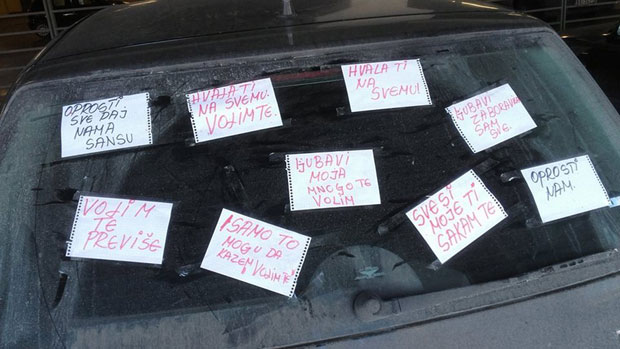 OPROSTI.
SVE DAJ
NAMA
SANSU
HVALA TI
NA SVEMU.
VOLIM TE.
HVALA TI
NA
SVEMU!
LJUBAVI
ZABORAVILA
SAM
SVE.
LJUBAVI
MOJA
MNOGO TE
VOLIM
OPROSTI
NAM.
VOLIM
TE
PREVIŠE
I SAMO TO
MOGU DA
KAZEM
VOLIM TE!
SVE SI
MOJE TI
SAKAM TE